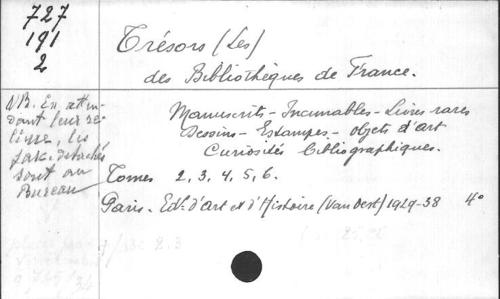 727
191
2
Trésors (Les)
des Bibliothèques de France.
Manuscrits - Incunables - Livres rares
Dessins - Estampes - objets d'art
Curiosités bibliographiques.
Tomes 2, 3, 4, 5, 6.
Paris. Ed. d'art et d'Histoire (Van Oest) 1929-38 4°
NB. En atten-
dant leur re-
liure, les
fasc. détachés
sont au
Bureau